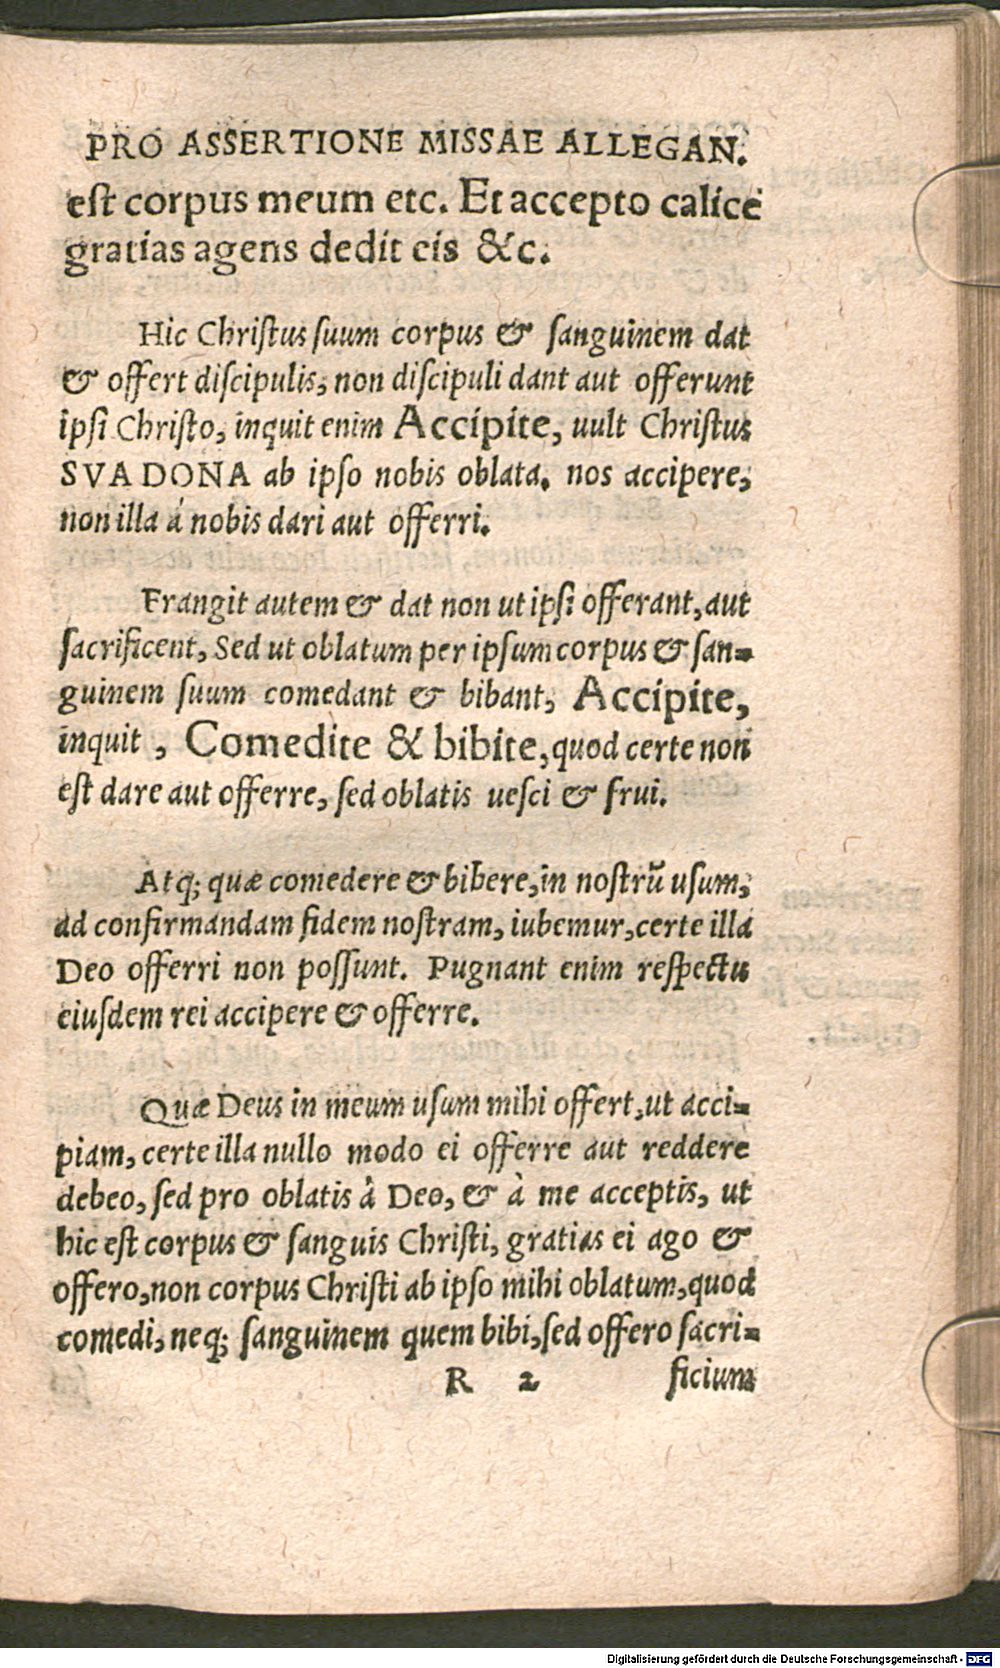 PRO ASSERTIONE MISSAE ALLEGAN.
est corpus meum etc. Et accepto calice
gratias agens dedit eis &c.
Hic Chriſtus ſuum corpus & ſanguinem dat
& offert diſcipulis, non diſcipuli dant aut offerunt
ipſi Chriſto, inquit enim Accipite, uult Chriſtus
SVA DONA ab ipſo nobis oblata. nos accipere,
non illa à nobis dari aut offerri.
Frangit autem & dat non ut ipſi offerant, aut
ſacrificent, Sed ut oblatum per ipſum corpus & ſan-
guinem ſuum comedant & bibant, Accipite,
inquit, Comedite & bibite, quod certe non
eſt dare aut offerre, ſed oblatis ueſci & frui.
Atq; quæ comedere & bibere, in noſtrū uſum,
ad confirmandam fidem noſtram, iubemur, certe illa
Deo offerri non poſſunt. Pugnant enim reſpectu
eiuſdem rei accipere & offerre.
Quæ Deus in meum uſum mihi offert, ut acci-
piam, certe illa nullo modo ei offerre aut reddere
debeo, ſed pro oblatis à Deo, & à me acceptis, ut
hic eſt corpus & ſanguis Chriſti, gratias ei ago &
offero, non corpus Chriſti ab ipſo mihi oblatum, quod
comedi, neq; ſanguinem quem bibi, ſed offero ſacri-
R 2 ficium
Digitalisierung gefördert durch die Deutsche Forschungsgemeinschaft - DFG